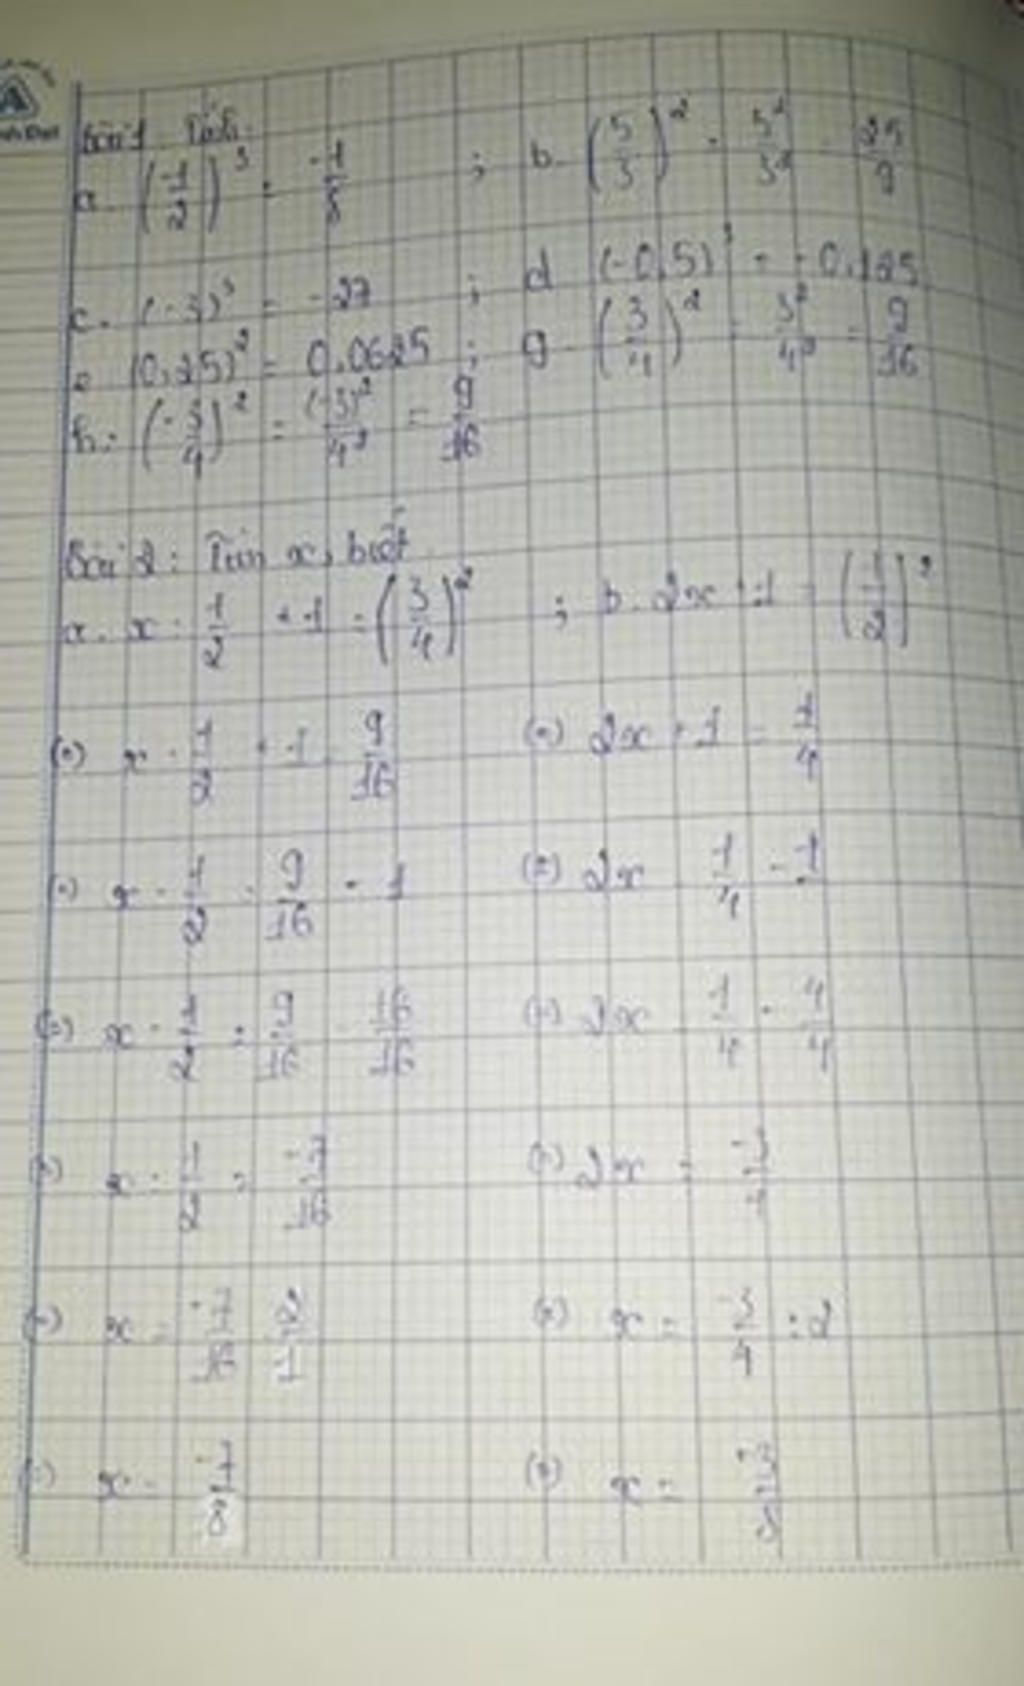 Bài 1: Tính
a. (-1/2)³ = -1/8 ; b. (5/3)² = 5²/3² = 25/9
c. (-3)³ = -27 ; d. (-0,5)³ = -0,125
e. (0,25)² = 0,0625 ; g. (3/4)² = 3²/4² = 9/16
h. (-3/4)² = (-3)²/4² = 9/16
Bài 2: Tìm x, biết
a. x · 1/2 + 1 = (3/4)² ; b. 2x + 1 = (1/2)²
(=) x · 1/2 + 1 = 9/16 (=) 2x + 1 = 1/4
(=) x · 1/2 = 9/16 - 1 (=) 2x = 1/4 - 1
(=) x · 1/2 = 9/16 - 16/16 (=) 2x = 1/4 - 4/4
(=) x · 1/2 = -7/16 (=) 2x = -3/4
(=) x = -7/16 · 2/1 (=) x = -3/4 : 2
(=) x = -7/8 (=) x = -3/8